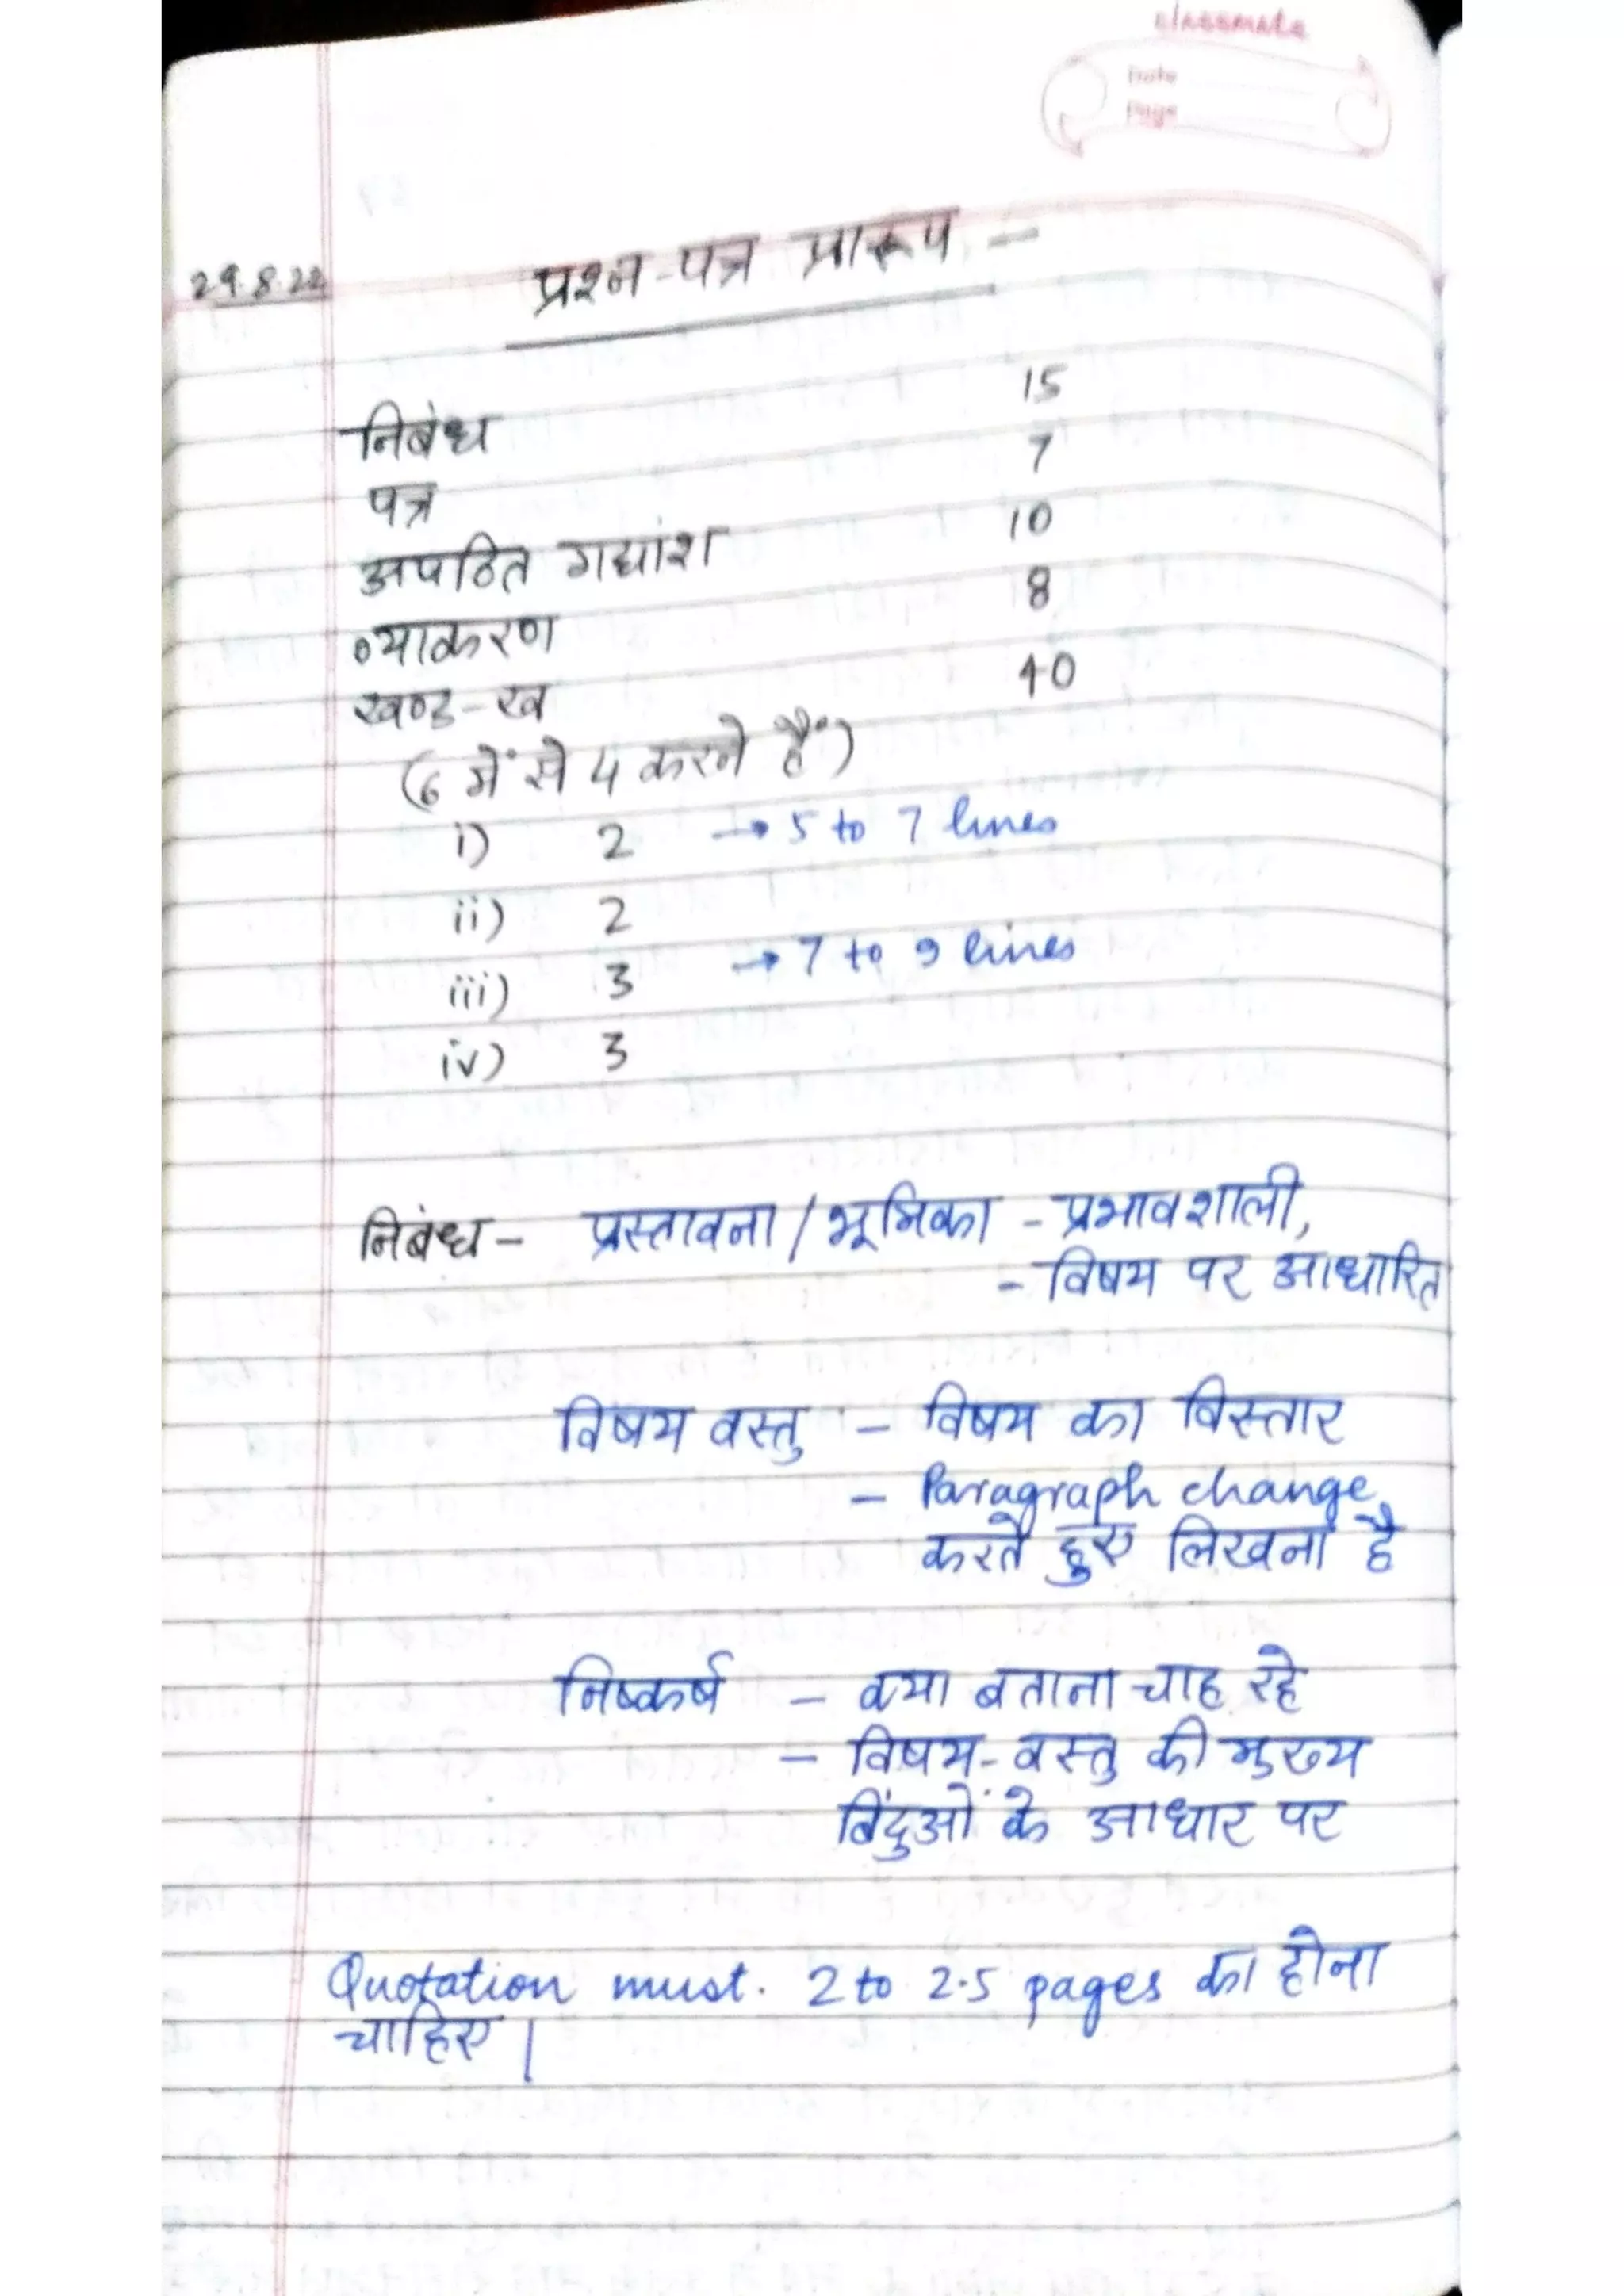 classmate
Date
Page
29.8.22
प्रश्न-पत्र प्रारूप –
निबंध 15
पत्र 7
अपठित गद्यांश 10
व्याकरण 8
खण्ड-ख 40
(6 में से 4 करने हैं)
i) 2 → 5 to 7 lines
ii) 2
iii) 3 → 7 to 9 lines
iv) 3
निबंध – प्रस्तावना / भूमिका - प्रभावशाली,
- विषय पर आधारित
विषय वस्तु – विषय का विस्तार
– Paragraph change
करते हुए लिखना है
निष्कर्ष – क्या बताना चाह रहे
– विषय-वस्तु की मुख्य
बिंदुओं के आधार पर
Quotation must. 2 to 2.5 pages का होना
चाहिए |